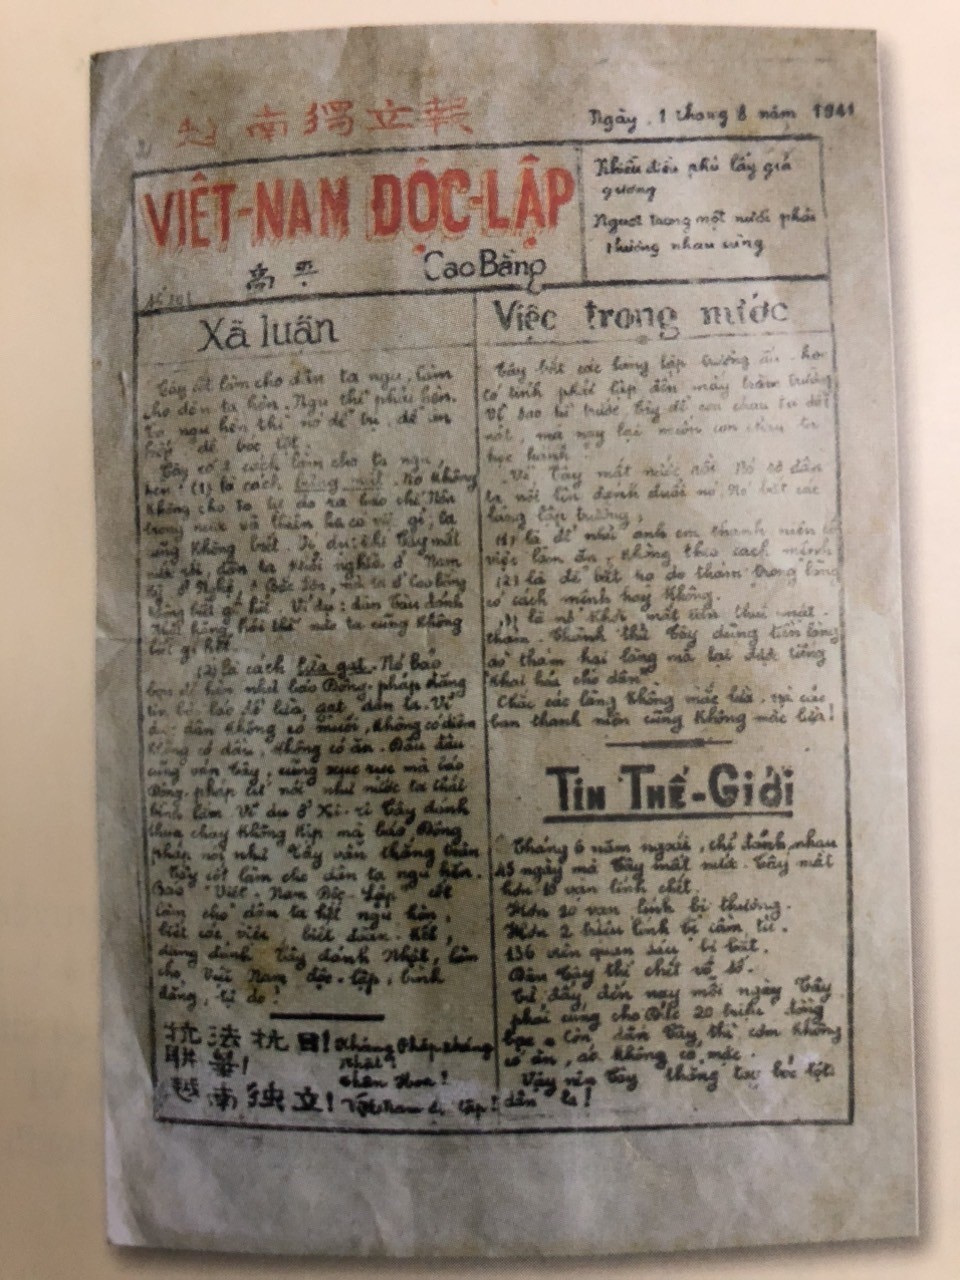 南獨立報
Ngày 1 tháng 8 năm 1941
VIỆT-NAM ĐỘC-LẬP
高平 Cao Bằng
Nhiễu điều phủ lấy giá
gương
Người trong một nước phải
thương nhau cùng
Xã luận
Tây cốt làm cho dân ta ngu, làm
cho dân ta hèn. Ngu thì phải hèn.
Ta ngu hèn thì nó dễ trị, dễ ăn
hiếp, dễ bóc lột.
Tây có 2 cách làm cho ta ngu,
hèn: (1) là cách bưng mắt. Nó không
cho ta tự do ra báo chí. Nên
trong nước và thiên hạ có việc gì, ta
cũng không biết. Ví dụ: khi Tây mất
nước rồi, dân ta khởi nghĩa ở Nam
Kỳ, ở Nghệ, ở Bắc Sơn, mà ta ở Cao Bằng
không biết gì hết. Ví dụ: dân Tàu đánh
Nhật hăng hái thế nào ta cũng không
biết gì hết.
(2) là cách lừa gạt. Nó báo
như báo Đông-pháp đăng
tin để lừa gạt dân ta. Ví
dụ: dân không có muối, không có diêm
không có dầu, không có ăn. Đâu đâu
cũng oán Tây, cũng xục xục mà báo
Đông-pháp cứ nói như nước ta thái
bình lắm. Ví dụ ở Xi-ri Tây đánh
thua chạy không kịp mà báo Đông
pháp nói như Tây vẫn thắng trận
Tây cốt làm cho dân ta ngu hèn.
Báo "Việt-Nam Độc-Lập" cốt
làm cho dân ta hết ngu hèn,
biết các việc, biết đoàn-kết,
đặng đánh Tây đánh Nhật, làm
cho Việt Nam độc-lập, bình
đẳng, tự do!
抗法抗日! Kháng Pháp kháng
Nhật!
聯華! Liên Hoa!
越南独立! Việt Nam độc lập!
Việc trong nước
Tây bắt các làng lập trường ấu-học
có tỉnh phải lập đến mấy trăm trường
Vì sao từ trước, Tây để con cháu ta dốt
nát, mà nay lại muốn con cháu ta
học hành?
Vì Tây mất nước rồi. Nó sợ dân
ta nổi lên đánh đuổi nó. Nó bắt các
làng lập trường,
(1) là để nhử anh em thanh niên
việc làm ăn, không theo cách mệnh
(2) là để bắt họ do thám trong làng
có cách mệnh hay không.
(3) là nó khỏi mất tiền thuê mật-
thám. Thành thử Tây dùng tiền làng
để thám hại làng mà lại được tiếng
"khai hóa cho dân".
Chắc các làng không mắc lừa, và các
bạn thanh niên cũng không mắc lừa!
TIN THẾ-GIỚI
Tháng 6 năm ngoái, chỉ đánh nhau
45 ngày mà Tây mất nước. Tây mất
hơn 10 vạn lính chết.
Hơn 20 vạn lính bị thương.
Hơn 2 triệu lính bị cầm tù.
136 viên quan sáu bị bắt.
Dân Tây thì chết vô số.
Từ đấy, đến nay mỗi ngày Tây
phải cúng cho Đức 20 triệu đồng
bạc. Còn dân Tây thì cơm không
có ăn, áo không có mặc.
Vậy nên Tây thẳng tay bóc lột
dân ta!